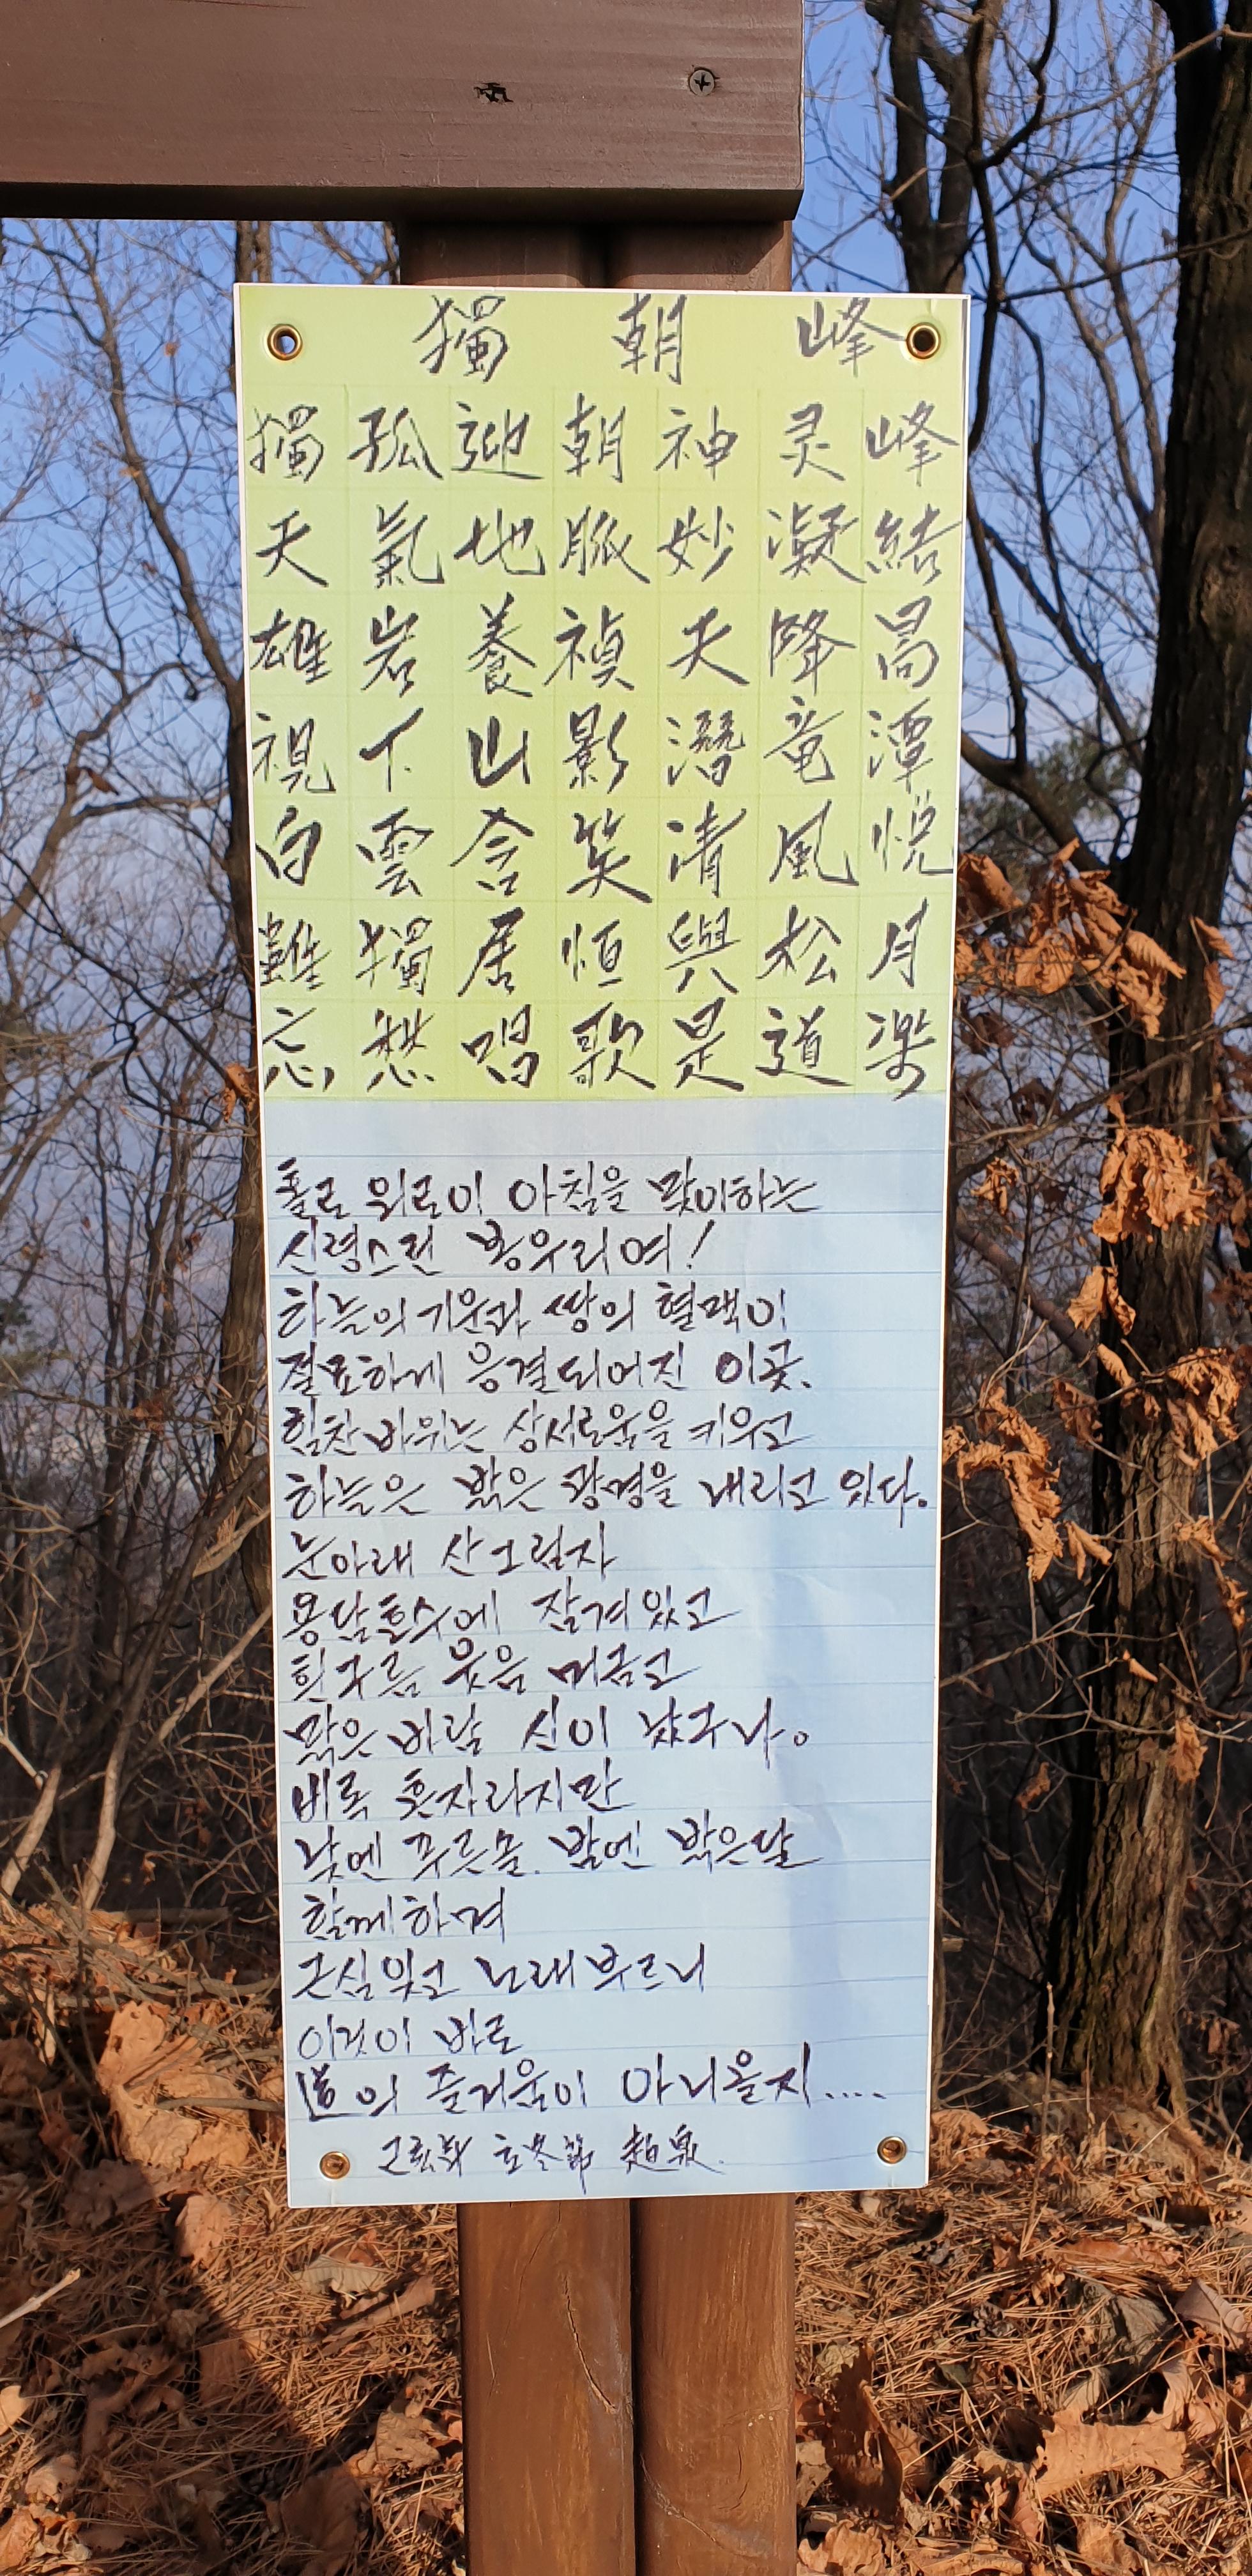 獨 朝 峰
獨 孤 迎 朝 神 灵 峰
天 氣 地 脈 妙 凝 結
雄 岩 養 禎 天 降 昌
視 下 山 影 潛 竜 潭
白 雲 含 笑 清 風 悦
雖 獨 居 恒 與 松 月
忘 愁 唱 歌 是 道 楽
홀로 외로이 아침을 맞이하는
신령스런 봉우리여!
하늘의 기운과 땅의 혈맥이
절묘하게 응결되어진 이곳.
힘찬 바위는 상서로움을 키우고
하늘은 밝은 광명을 내리고 있다.
눈아래 산그림자
용담호수에 잠겨있고
흰구름 웃음 머금고
맑은 바람 신이 났구나.
비록 혼자라지만
낮엔 푸른솔. 밤엔 밝은달
함께하며
근심잊고 노래부르니
이것이 바로
道의 즐거움이 아니올지....